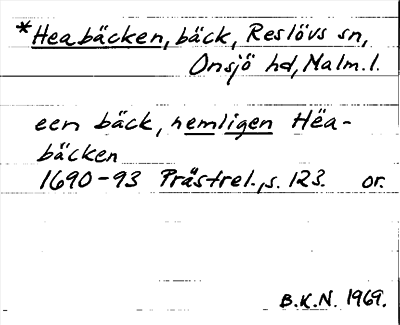 *Heabäcken, bäck, Reslövs sn,
Onsjö hd, Malm. l.
een bäck, nemligen Hëa-
bäcken
1690-93 Prästrel., s. 123. or.
B.K.N. 1969.